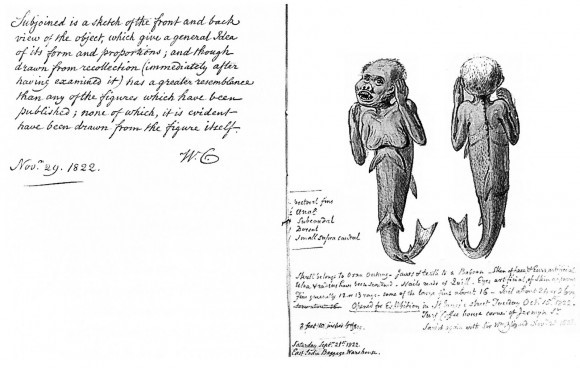 Subjoined is a sketch of the front and back
view of the object, which give a general Idea
of its form and proportions; and though
drawn from recollection (immediately after
having examined it) has a greater resemblance
than any of the figures which have been
published; none of which, it is evident
have been drawn from the figure itself—
W. C
Novr. 29. 1822.
Pectoral fins
Anal
Subcaudal
Dorsal
Small supra caudal
Skull belongs to Oran Outang – jaws & teeth to a Baboon – Skin of face &
have been – Nails made of Quill – Eyes artificial,
Fins generally 12 or 13 rays – some of the large fins about 16 –
Opened for Exhibition in St James's street Tuesday Oct. 15. 1822.
Turf Coffee house corner of Jermyn St
2 feet 10 inches
Saturday Septr. 21st 1822.
East India Baggage Warehouse.